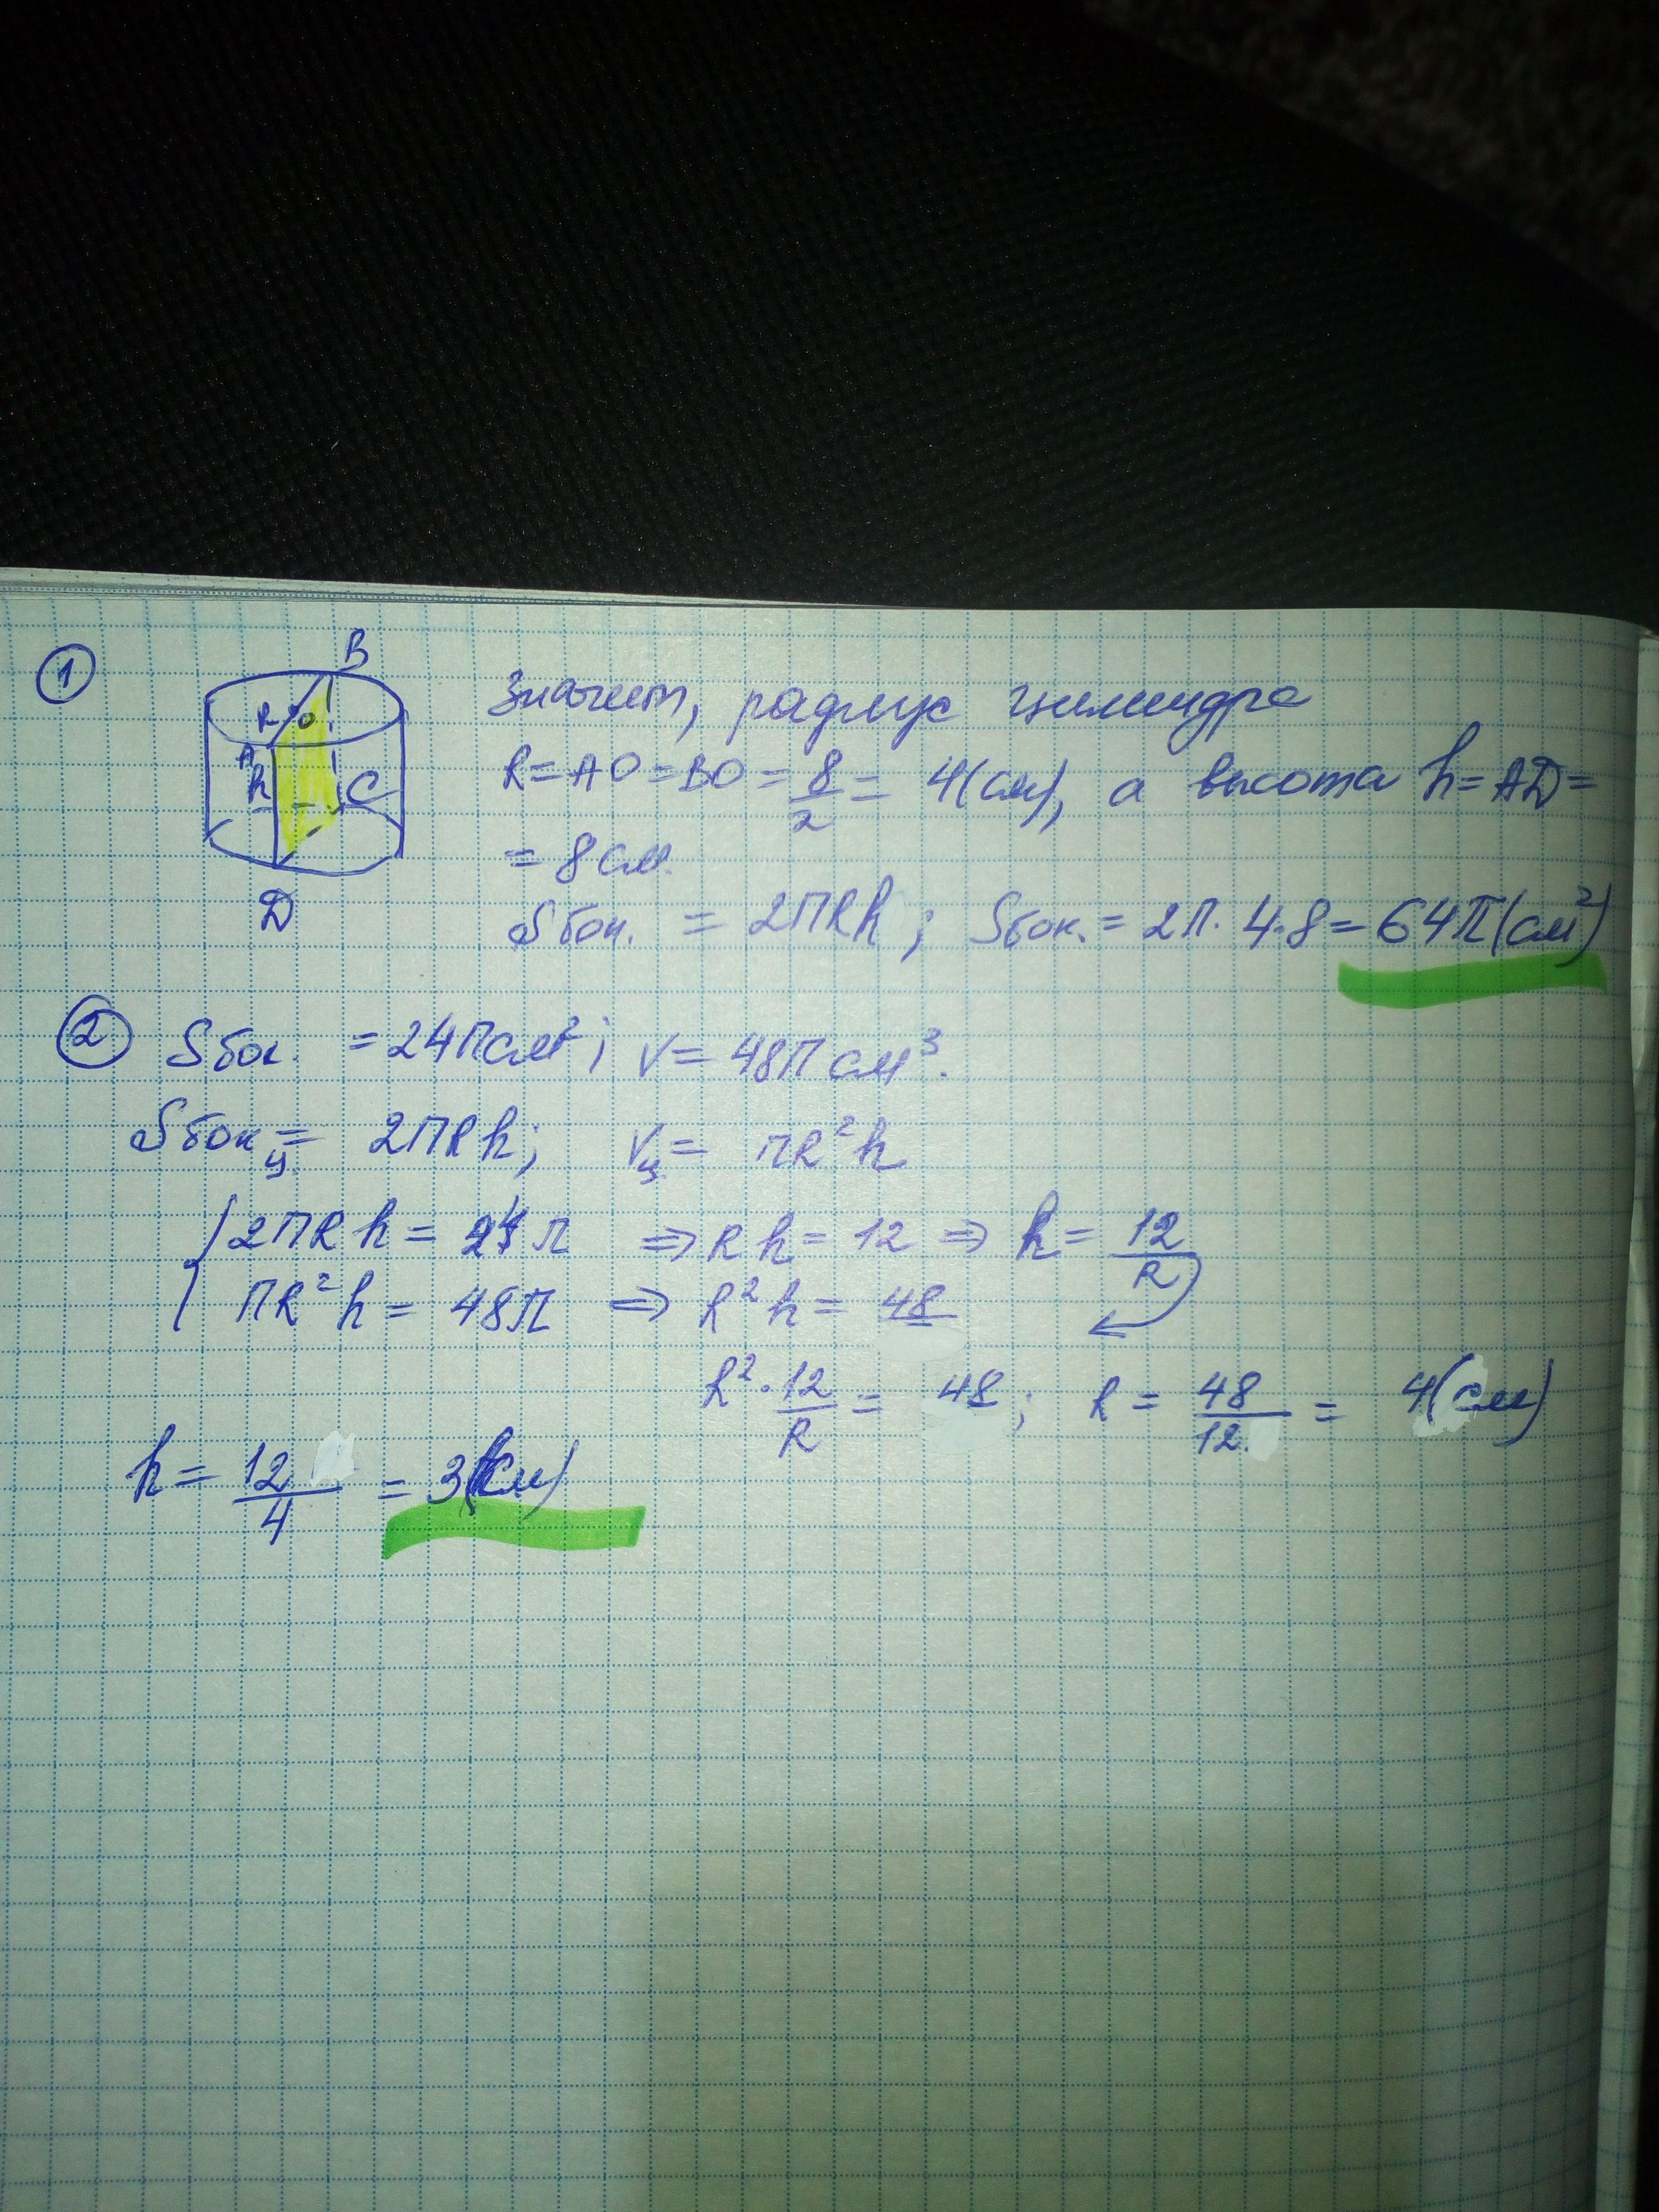 1
B
R O
A
h C
D
Значит, радиус цилиндра
R = AO = BO = 8/2 = 4 (см), а высота h = AD =
= 8 см.
Sбок. = 2ПRh ; Sбок. = 2П. 4·8 = 64П (см²)
2 Sбок. = 24П см² ; V = 48П см³.
Sбок ц. = 2ПRh ; Vц = ПR²h
2ПRh = 24П => Rh = 12 => h = 12/R
ПR²h = 48П => R²h = 48
R² · 12/R = 48 ; R = 48/12 = 4 (см)
h = 12/4 = 3 (см)